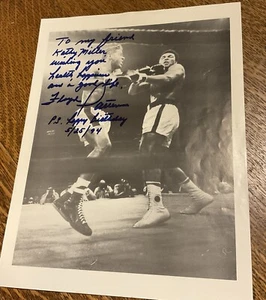 To my friend
Kathy Miller,
wishing you
health happiness
and a good life.
Floyd Patterson
P.S. Happy birthday
5/25/94